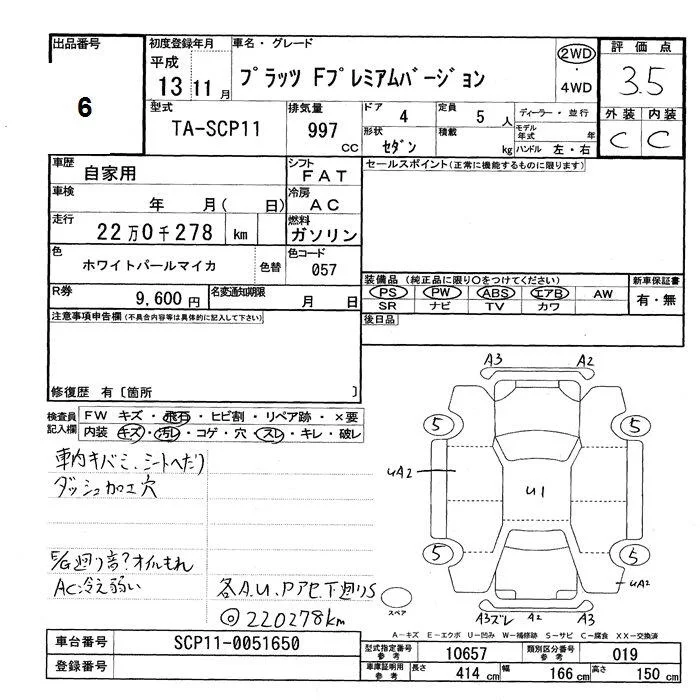 出品番号
6
初度登録年月
平成
13 11 月
車名・グレード
プラッツ Fプレミアムバージョン
2WD
・
4WD
評価点
3.5
型式
TA-SCP11
排気量
997 cc
ドア 4
定員 5 人
形状 セダン
積載 kg
ディーラー・並行
モデル年式 年
ハンドル 左・右
外装 内装
C C
車歴 自家用
シフト FAT
車検 年 月( 日)
冷房 AC
走行 22万0千278 km
燃料 ガソリン
色 ホワイトパールマイカ 色替
色コード 057
R券 9,600円
名変通知期限 月 日
セールスポイント(正常に機能するものに限ります)
装備品 (純正品に限り○をつけてください)
PS PW ABS エアB AW
SR ナビ TV カワ
新車保証書
有・無
後日品
注意事項申告欄(不具合内容等は具体的に記入して下さい)
修復歴 有〔箇所 〕
検査員記入欄
FW キズ・飛石・ヒビ割・リペア跡・×要
内装 キズ・汚レ・コゲ・穴・スレ・キレ・破レ
車内キバミ、シートへたり
ダッシュ加工穴
E/G廻り音?オイルもれ
AC冷え弱い
各A.U.Pアセ、下廻りS
◎220278km
A3 A2
5 5
uA2
U1
5 5
uA2
スペア
A3ズレ A2 A3
A-キズ E-エクボ U-凹み W-補修跡 S-サビ C-腐食 XX-交換済
車台番号 SCP11-0051650
登録番号
型式指定番号 参考 10657
類別区分番号 参考 019
車庫証明用 参考 長さ 414 cm 幅 166 cm 高さ 150 cm